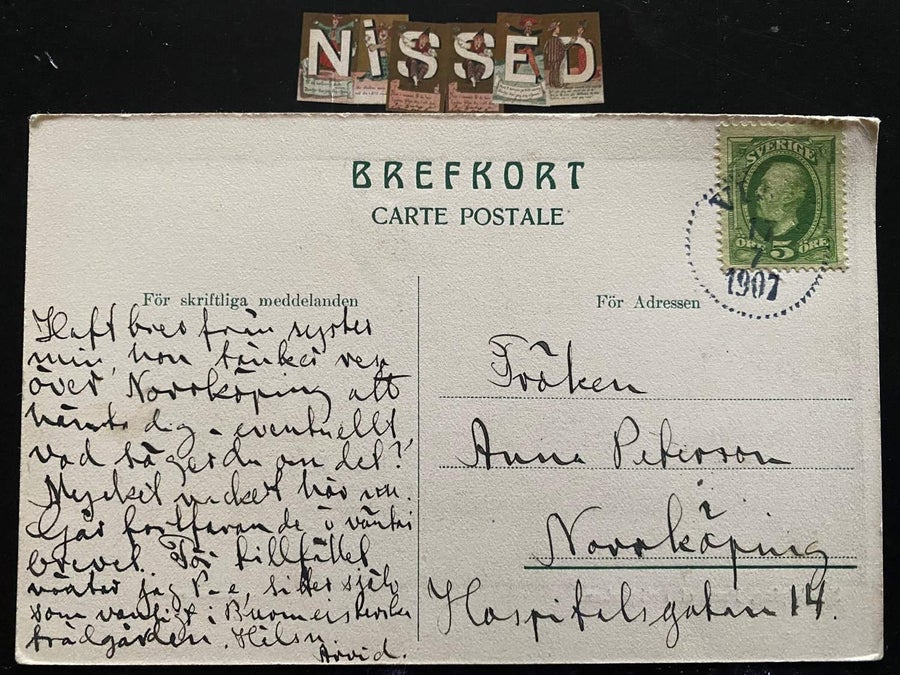 NiSSED
BREFKORT
CARTE POSTALE
SVERIGE
ÖRE 5 ÖRE
1907
För skriftliga meddelanden
Haft brev från syster
min, hon tänker resa
över Norrköping att
hämta dig - eventuellt
vad säger du om det?
Mycket vackert här nu.
Går fortfarande o väntar
brevet. För tillfället
väntar jag P-e, sitter själv
som vanligt i Burmeisterska
trädgården. Hälsn.
Arvid.
För Adressen
Fröken
Anna Peterson
i
Norrköping
Hospitalsgatan 14.